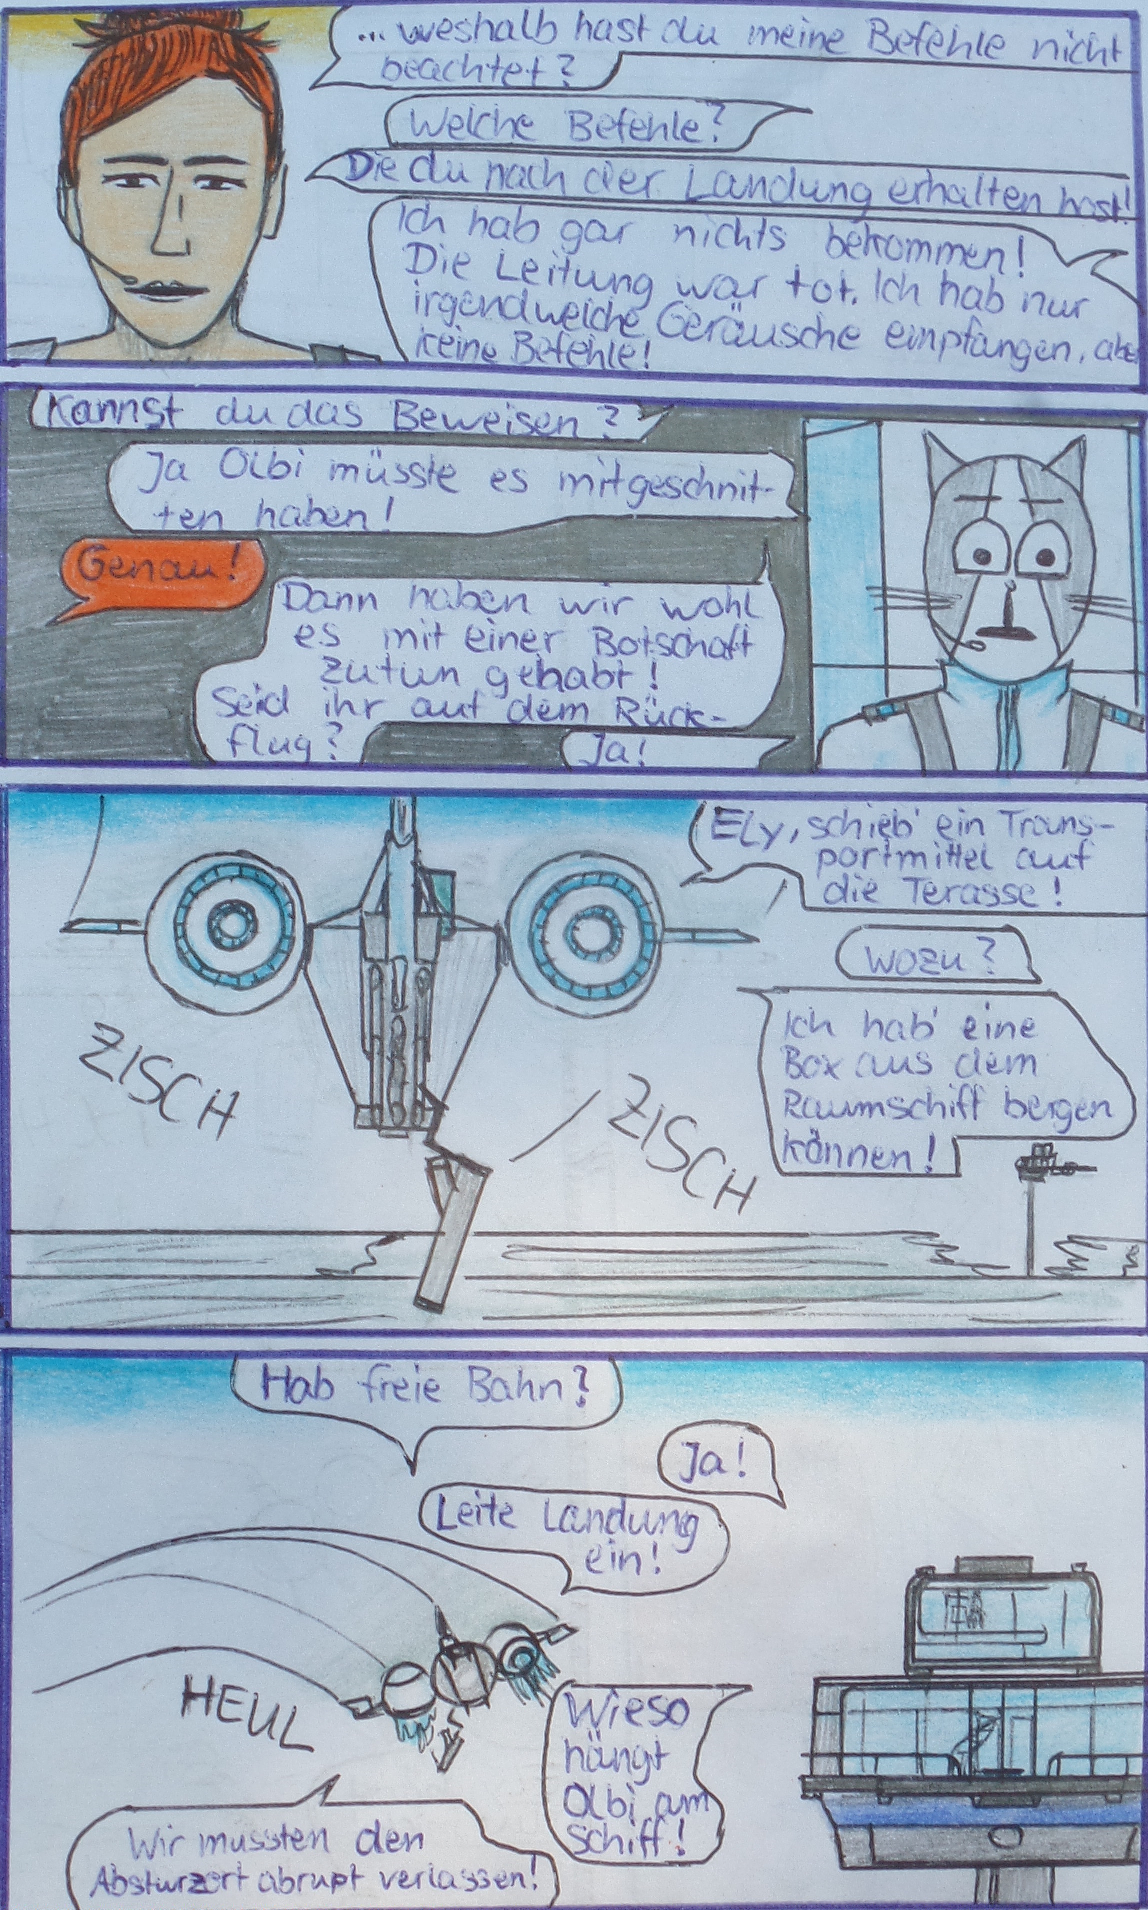 ... weshalb hast du meine Befehle nicht
beachtet?
Welche Befehle?
Die du nach der Landung erhalten hast!
Ich hab gar nichts bekommen!
Die Leitung war tot. Ich hab nur
irgendwelche Geräusche empfangen, aber
keine Befehle!
Kannst du das Beweisen?
Ja Olbi müsste es mitgeschnit-
ten haben!
Genau!
Dann haben wir wohl
es mit einer Botschaft
zutun gehabt!
Seid ihr auf dem Rück-
flug?
Ja!
Ely, schieb' ein Trans-
portmittel auf
die Terasse!
Wozu?
Ich hab' eine
Box aus dem
Raumschiff bergen
können!
ZISCH
ZISCH
Hab freie Bahn?
Ja!
Leite Landung
ein!
HEUL
Wieso
hängt
Olbi am
Schiff!
Wir mussten den
Absturzort abrupt verlassen!